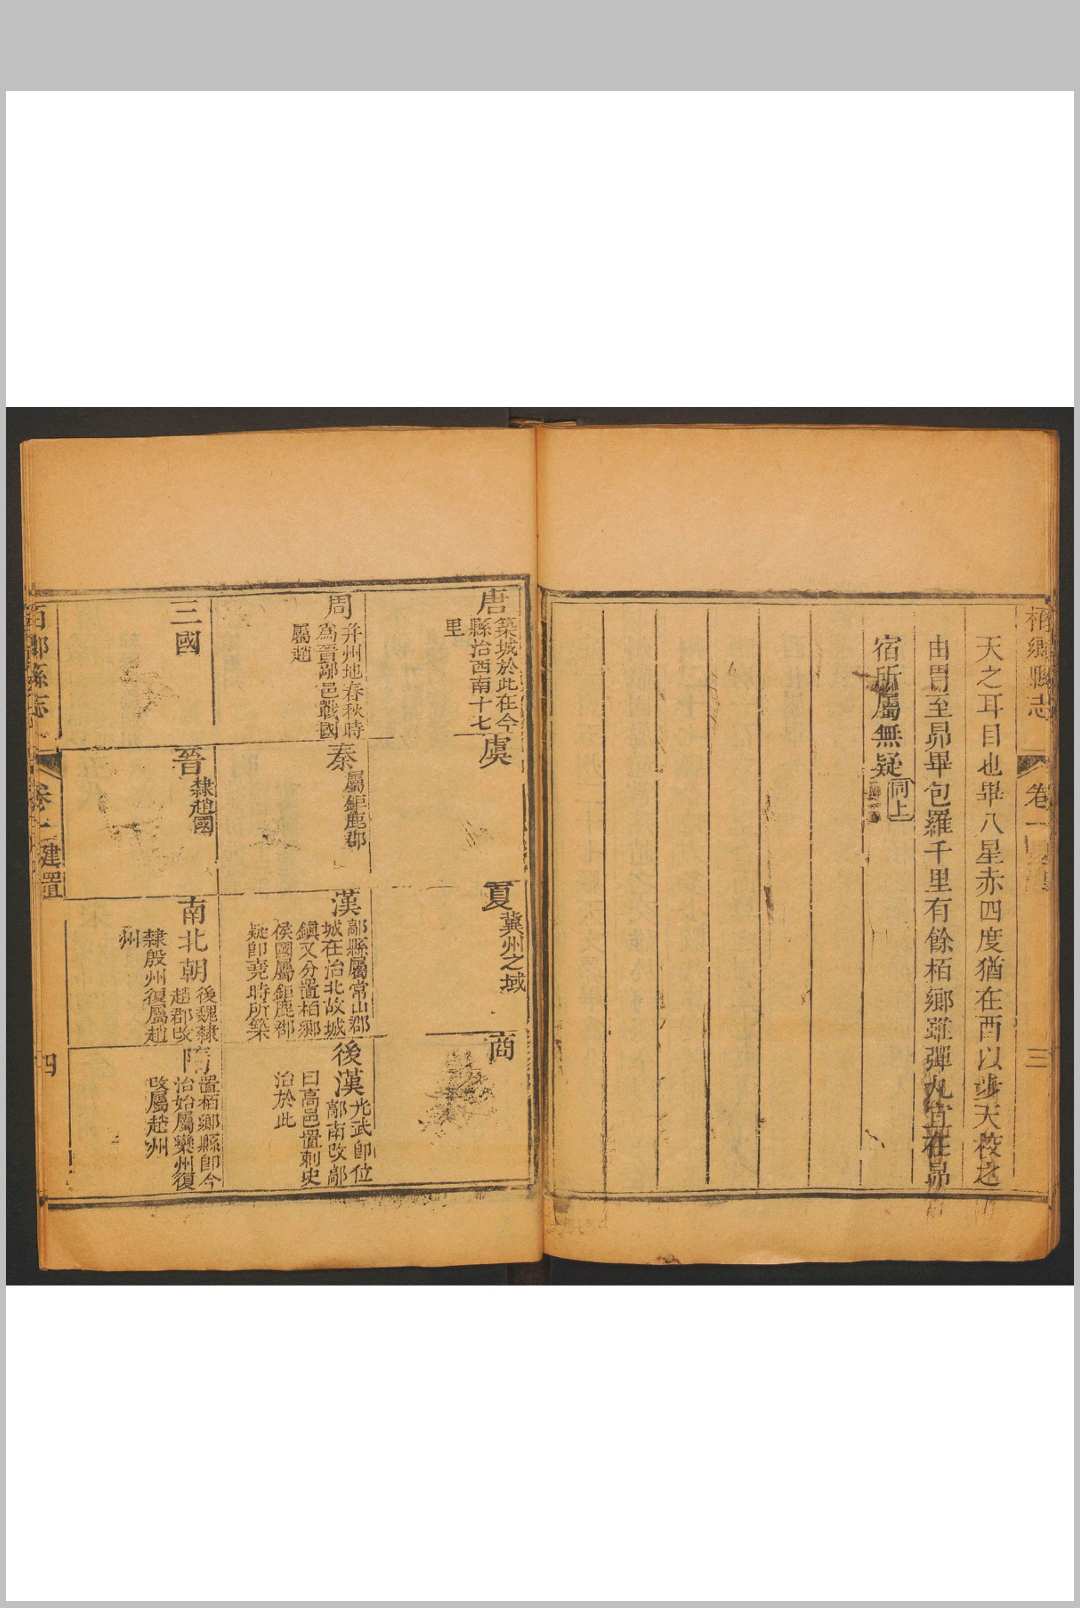 柏鄉縣志
卷一
三
天之耳目也畢八星赤四度猶在酉以步天梭之
由胃至昴畢包羅千里有餘柏鄉雖彈丸宜在昴
宿所屬無疑同上
唐
築城於此在今
縣治西南十七
里
虞
夏
冀州之域
商
周
并州地春秋時
為晉鄗邑戰國
屬趙
秦
屬鉅鹿郡
漢
鄗縣屬常山郡
城在治北故城
鎮又分置柏鄉
侯國屬鉅鹿郡
疑卽堯時所築
後漢
光武卽位
鄗南改鄗
曰高邑置刺史
治於此
三國
晉
隸趙國
南北朝
後魏隸
趙郡改
隸殷州復屬趙
州
置柏鄉縣卽今
治始屬欒州復
改屬趙州
鄉縣志
卷一
建置
四